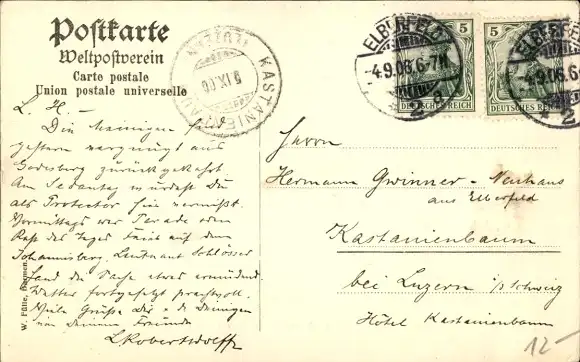 Postkarte
Weltpostverein
Carte postale
Union postale universelle
KASTANIENBAUM
(LUZERN)
6 IX 06
ELBERFELD
4.9.06.6-7N
2
5
DEUTSCHES REICH
5
DEUTSCHES REICH
ELBERFELD
4.9.06.6-7N
2
L. H.–
Die Meinigen sind
gestern vergnügt aus
Godesberg zurückgekehrt.
Am Sedantag wurdest Du
als Protector hier vermißt.
Vormittags war Parade
auf dem
Johannisberg. Lieutnant Schlösser
fand die Sache etwas ermüdend.
Wetter fortgesetzt prachtvoll.
Viele Grüße Dir u. d. Deinigen
von Deinem Freunde
W. Fülle, Barmen.
Herrn
Hermann Gwinner-Neuhaus
aus Elberfeld
Kastanienbaum
bei Luzern i/Schweiz
Hôtel Kastanienbaum
12-